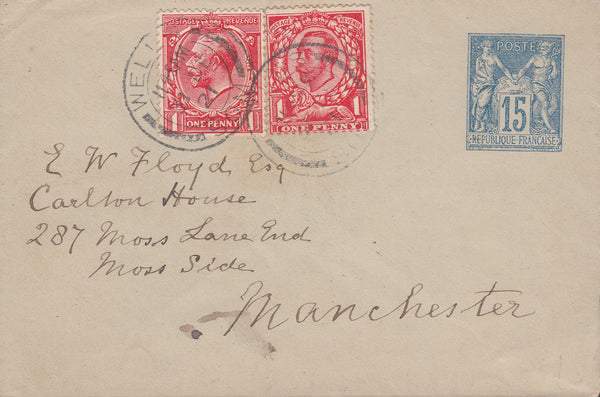 POSTAGE REVENUE
1 ONE PENNY 1
POSTAGE REVENUE
1 ONE PENNY 1
WELL
21
POSTE
15
REPUBLIQUE FRANÇAISE
E W Floyd Esq
Carlton House
287 Moss Lane End
Moss Side
Manchester